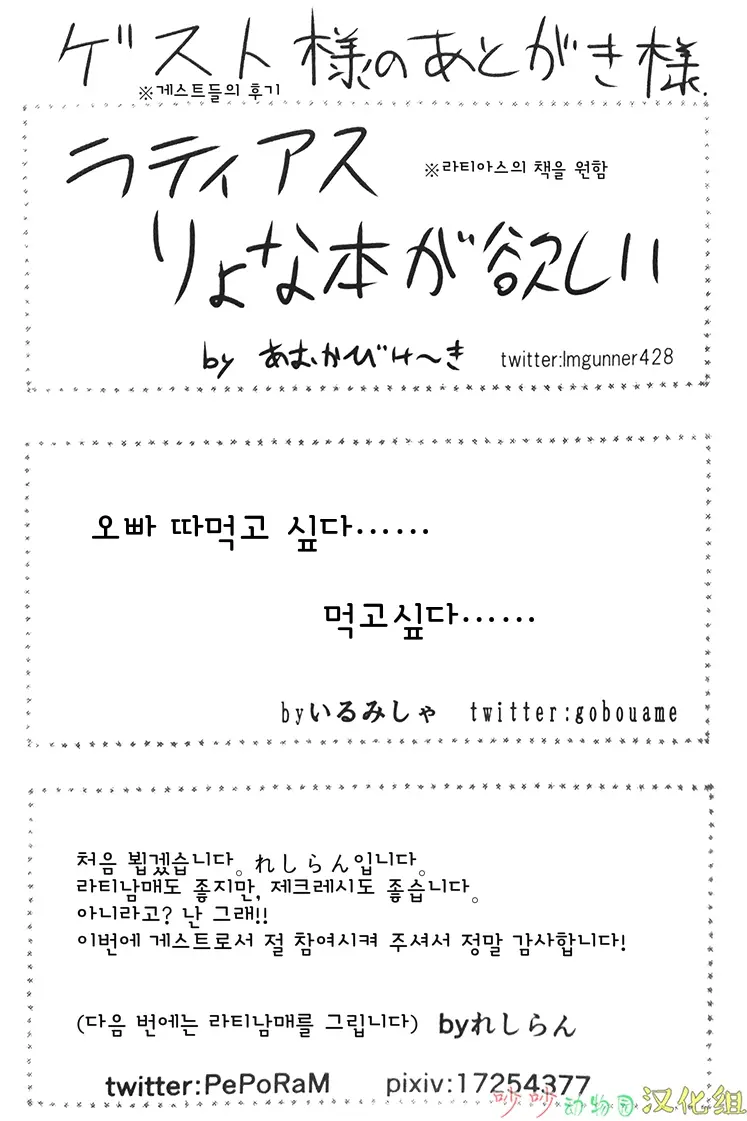 ゲスト様のあとがき様.
※게스트들의 후기
ラティアス
※라티아스의 책을 원함
りょな本が欲しい
by あむかびけ〜き twitter:lmgunner428
오빠 따먹고 싶다……
먹고싶다……
byいるみしゃ twitter:gobouame
처음 뵙겠습니다。れしらん입니다。
라티남매도 좋지만, 제크레시도 좋습니다。
아니라고? 난 그래!!
이번에 게스트로서 절 참여시켜 주셔서 정말 감사합니다!
(다음 번에는 라티남매를 그립니다) byれしらん
twitter:PePoRaM pixiv:17254377
吵吵动物园汉化组